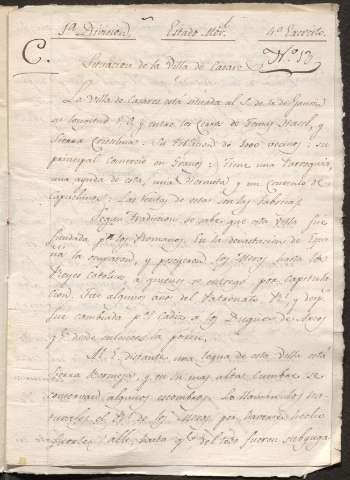 1ª División. Estado Mor. 4º Exercito.
C. Nº 13
Situacion de la Villa de Casares
La Villa de Casares está situada al S. de la de Gaucin
su longitud y entre las de y
Sierra Crestellina. Su Poblacion de 1000 vecinos: su
principal comercio en Granos: Tiene una Parroquia,
una ayuda de esta, una Hermita y un Convento de
Capuchinos. Las rentas de estas son las
Segun tradicion se sabe que esta Villa fue
fundada pr los Romanos. En la devastacion de Espa-
ña la ocuparon, y poseyeron los Moros hasta los
Reyes Catolicos, á quienes se entregó por capitula-
cion. Fue algunos años del Patronato Rl. y
fue cambiada pr Cadiz á los Duques de Arcos
qe desde entonces la poseen.
Al E. distante una legua de esta Villa está
Sierra Bermeja y en su mas alta cumbre se
conservan algunos escombros. La llaman los na-
turales el de los Moros por haverse hecho
fuertes alli, hasta qe del todo fueron subyuga-